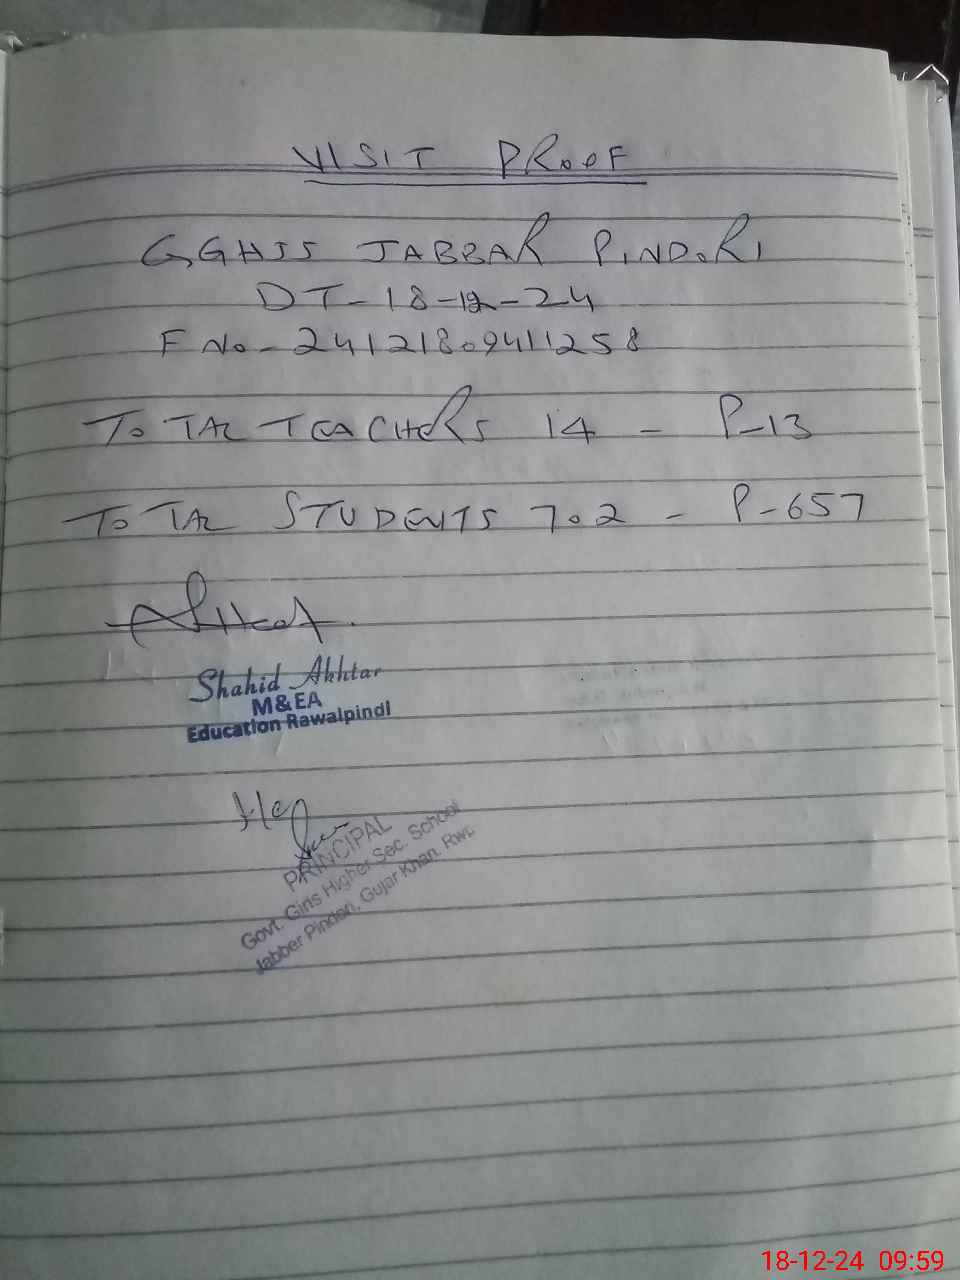 VISIT PROOF
GGHSS JABBAR PINDORI
DT-18-12-24
F No-24121809411258
TOTAL TEACHERS 14 - P-13
TOTAL STUDENTS 702 - P-657
Shahid Akhtar
M&EA
Education Rawalpindi
PRINCIPAL
Govt. Girls Higher Sec. School
Jabber Pindori, Gujar Khan. Rwp
18-12-24 09:59